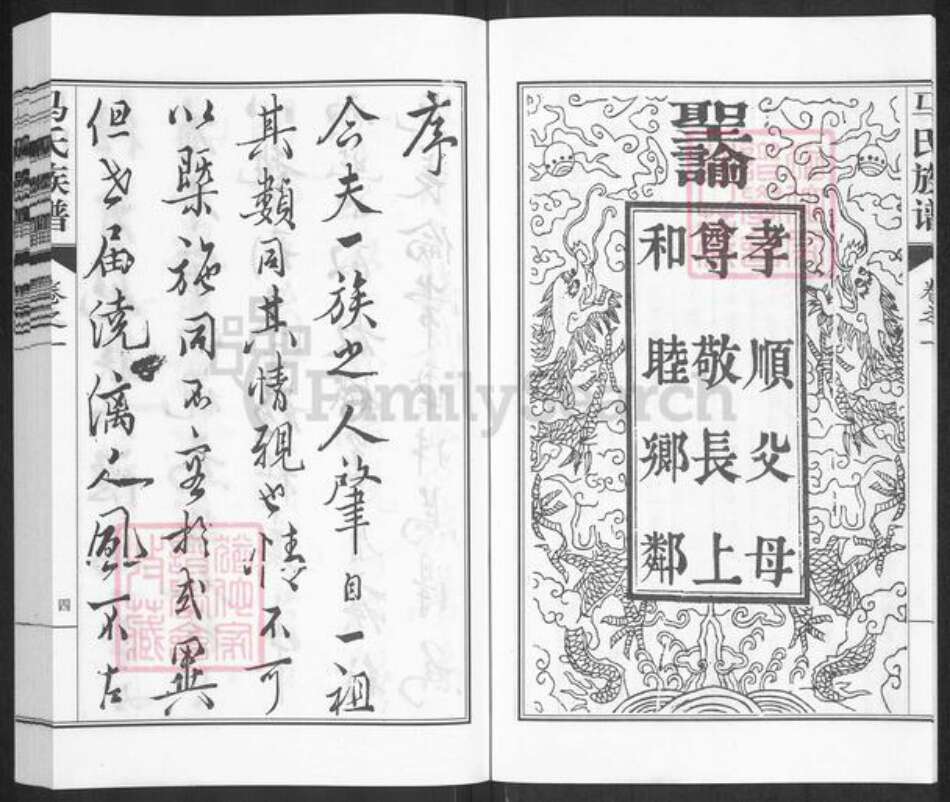 马氏族谱
卷之一
聖諭
孝順父母
尊敬長上
和睦鄉鄰
序
今夫一族之人肇自一祖
其類同其情親也情不可
以槩施同不容於或異
但世届澆漓人風不古
马氏族谱
卷之一
四
FamilySearch